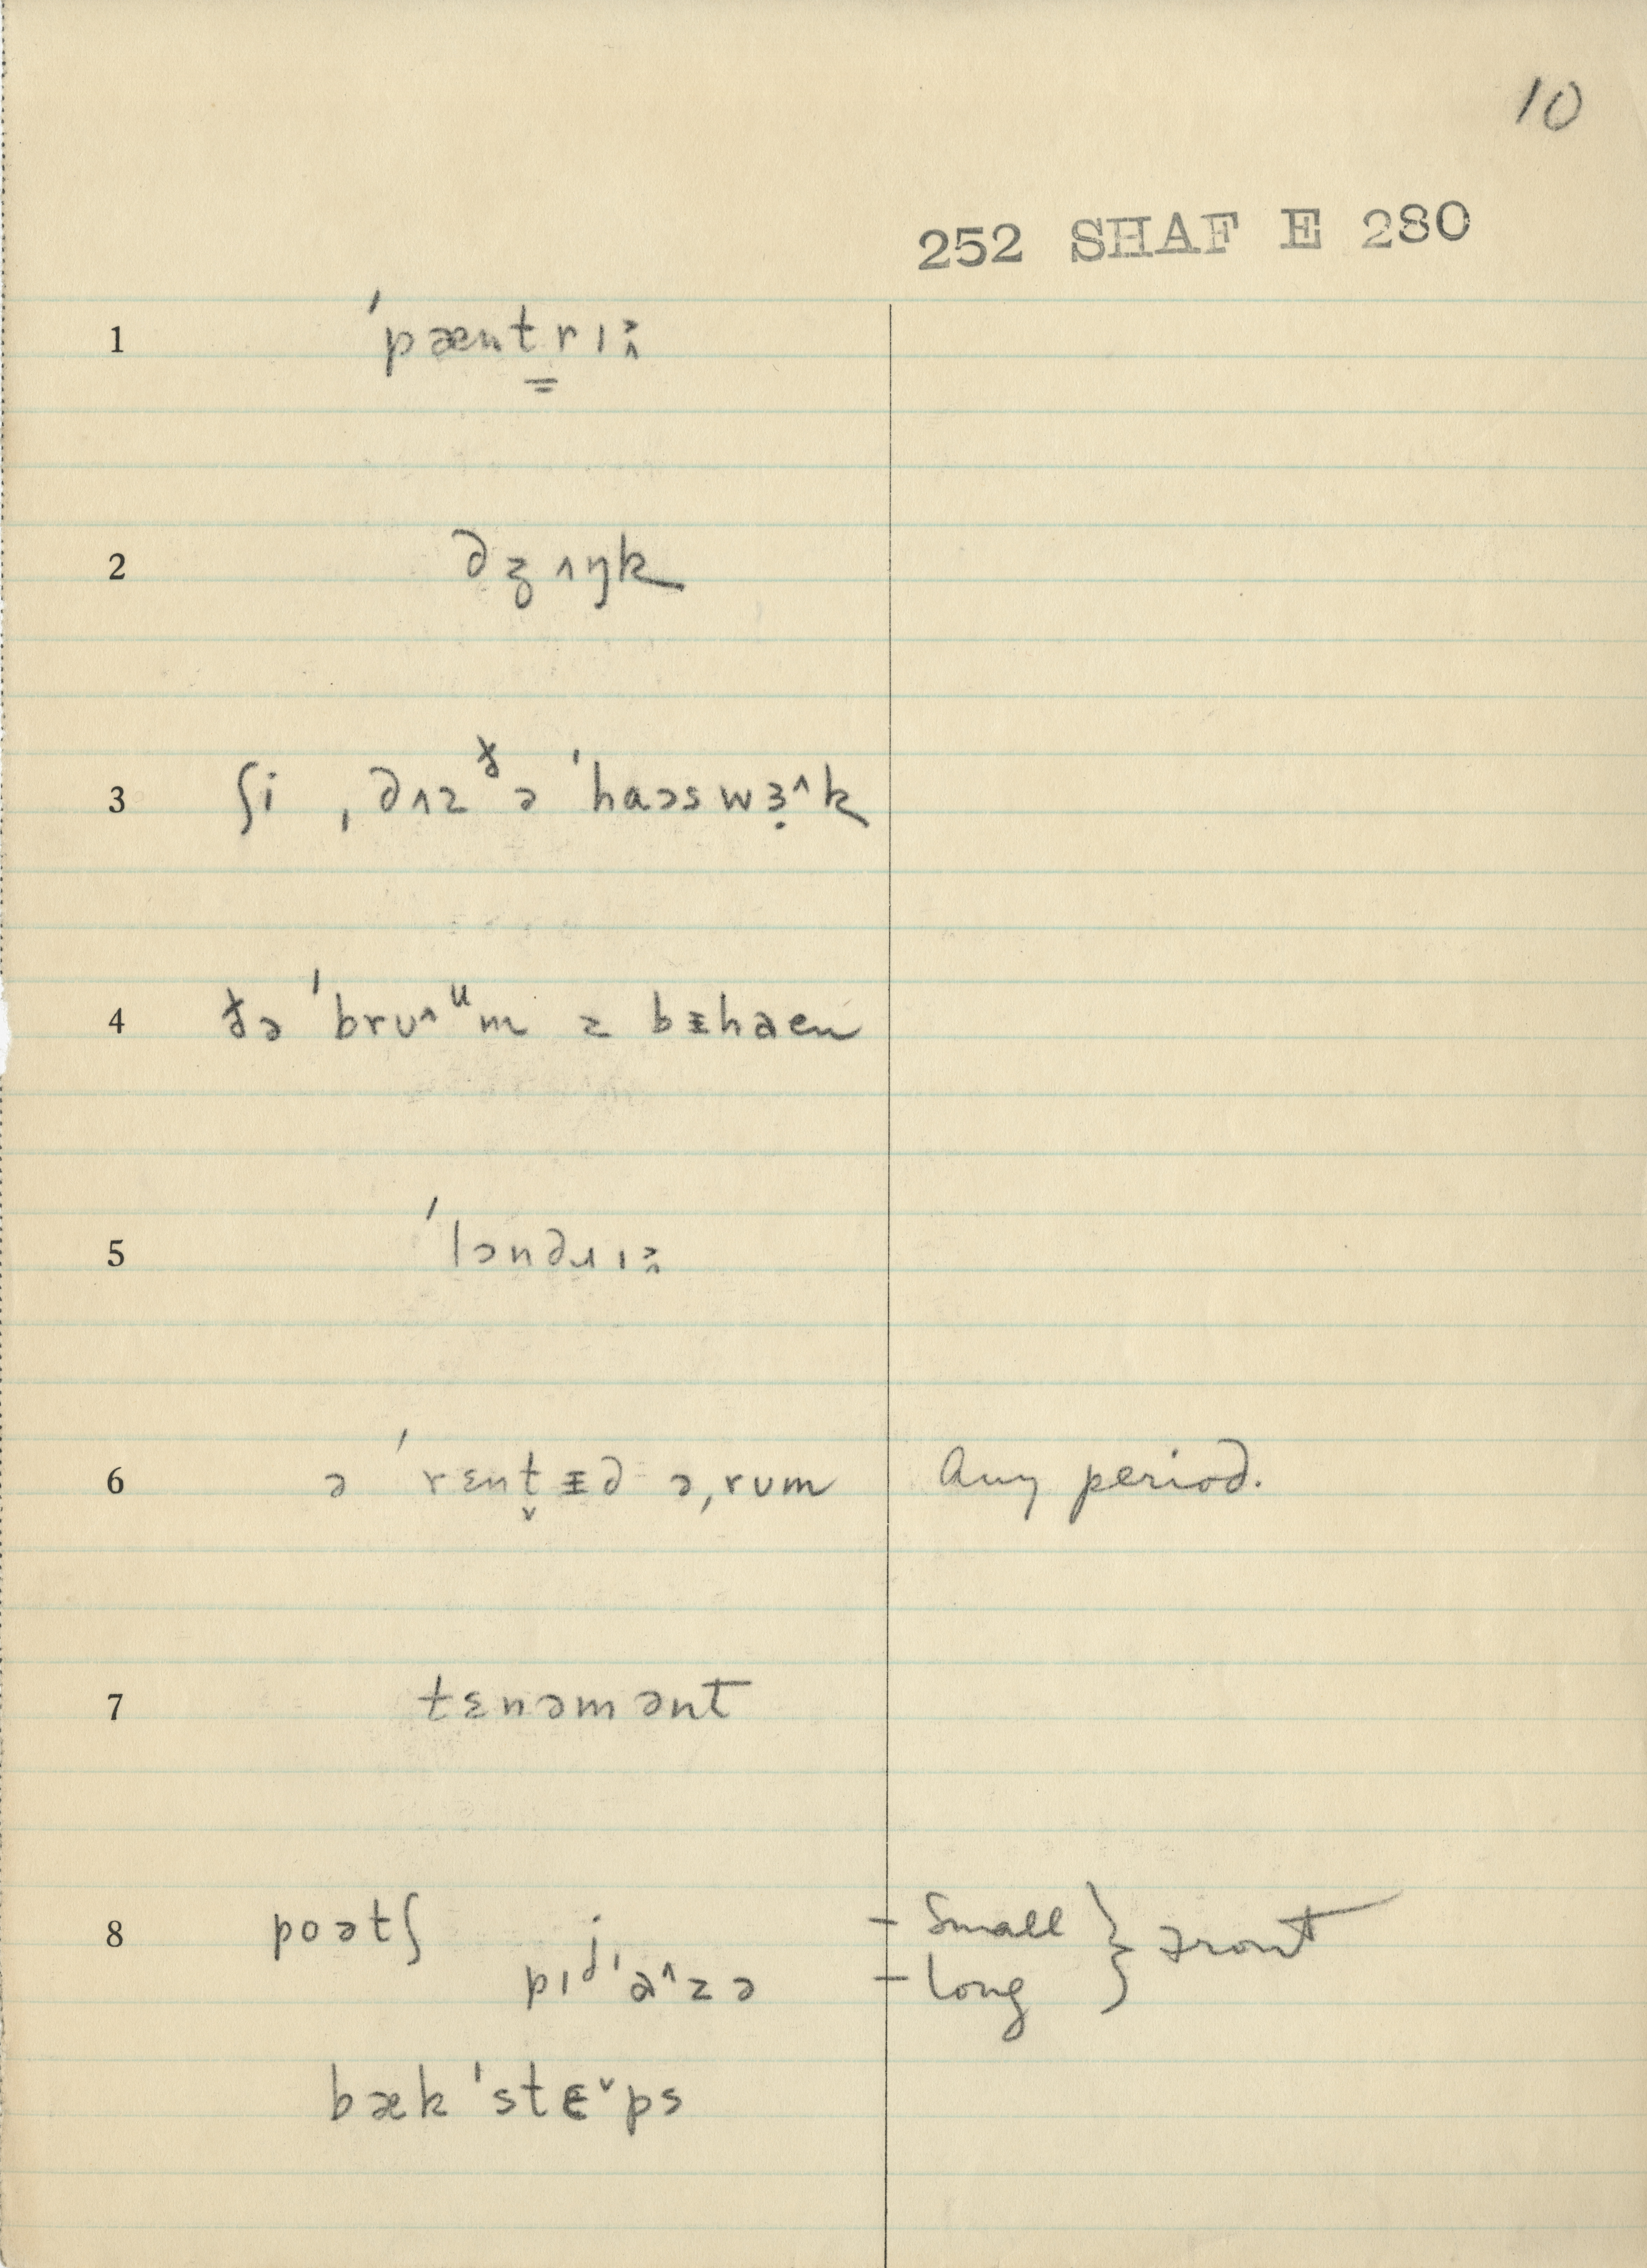 10
252 SHAF E 280
1 ˈpæntrɪ
2 dʒʌŋk
3 ʃi ˌdʌz ðə ˈhaəswɜ̣^k
4 ðə ˈbrʊ^ᵘm z bᵻhaen
5 ˈlɔndɹɪ
6 ə ˈrɛnt̬ᵻd ə ˌrum Any period.
7 tɛnəmənt
8 poətʃ - Small } Front
- long
bæk ˈstɛˇps